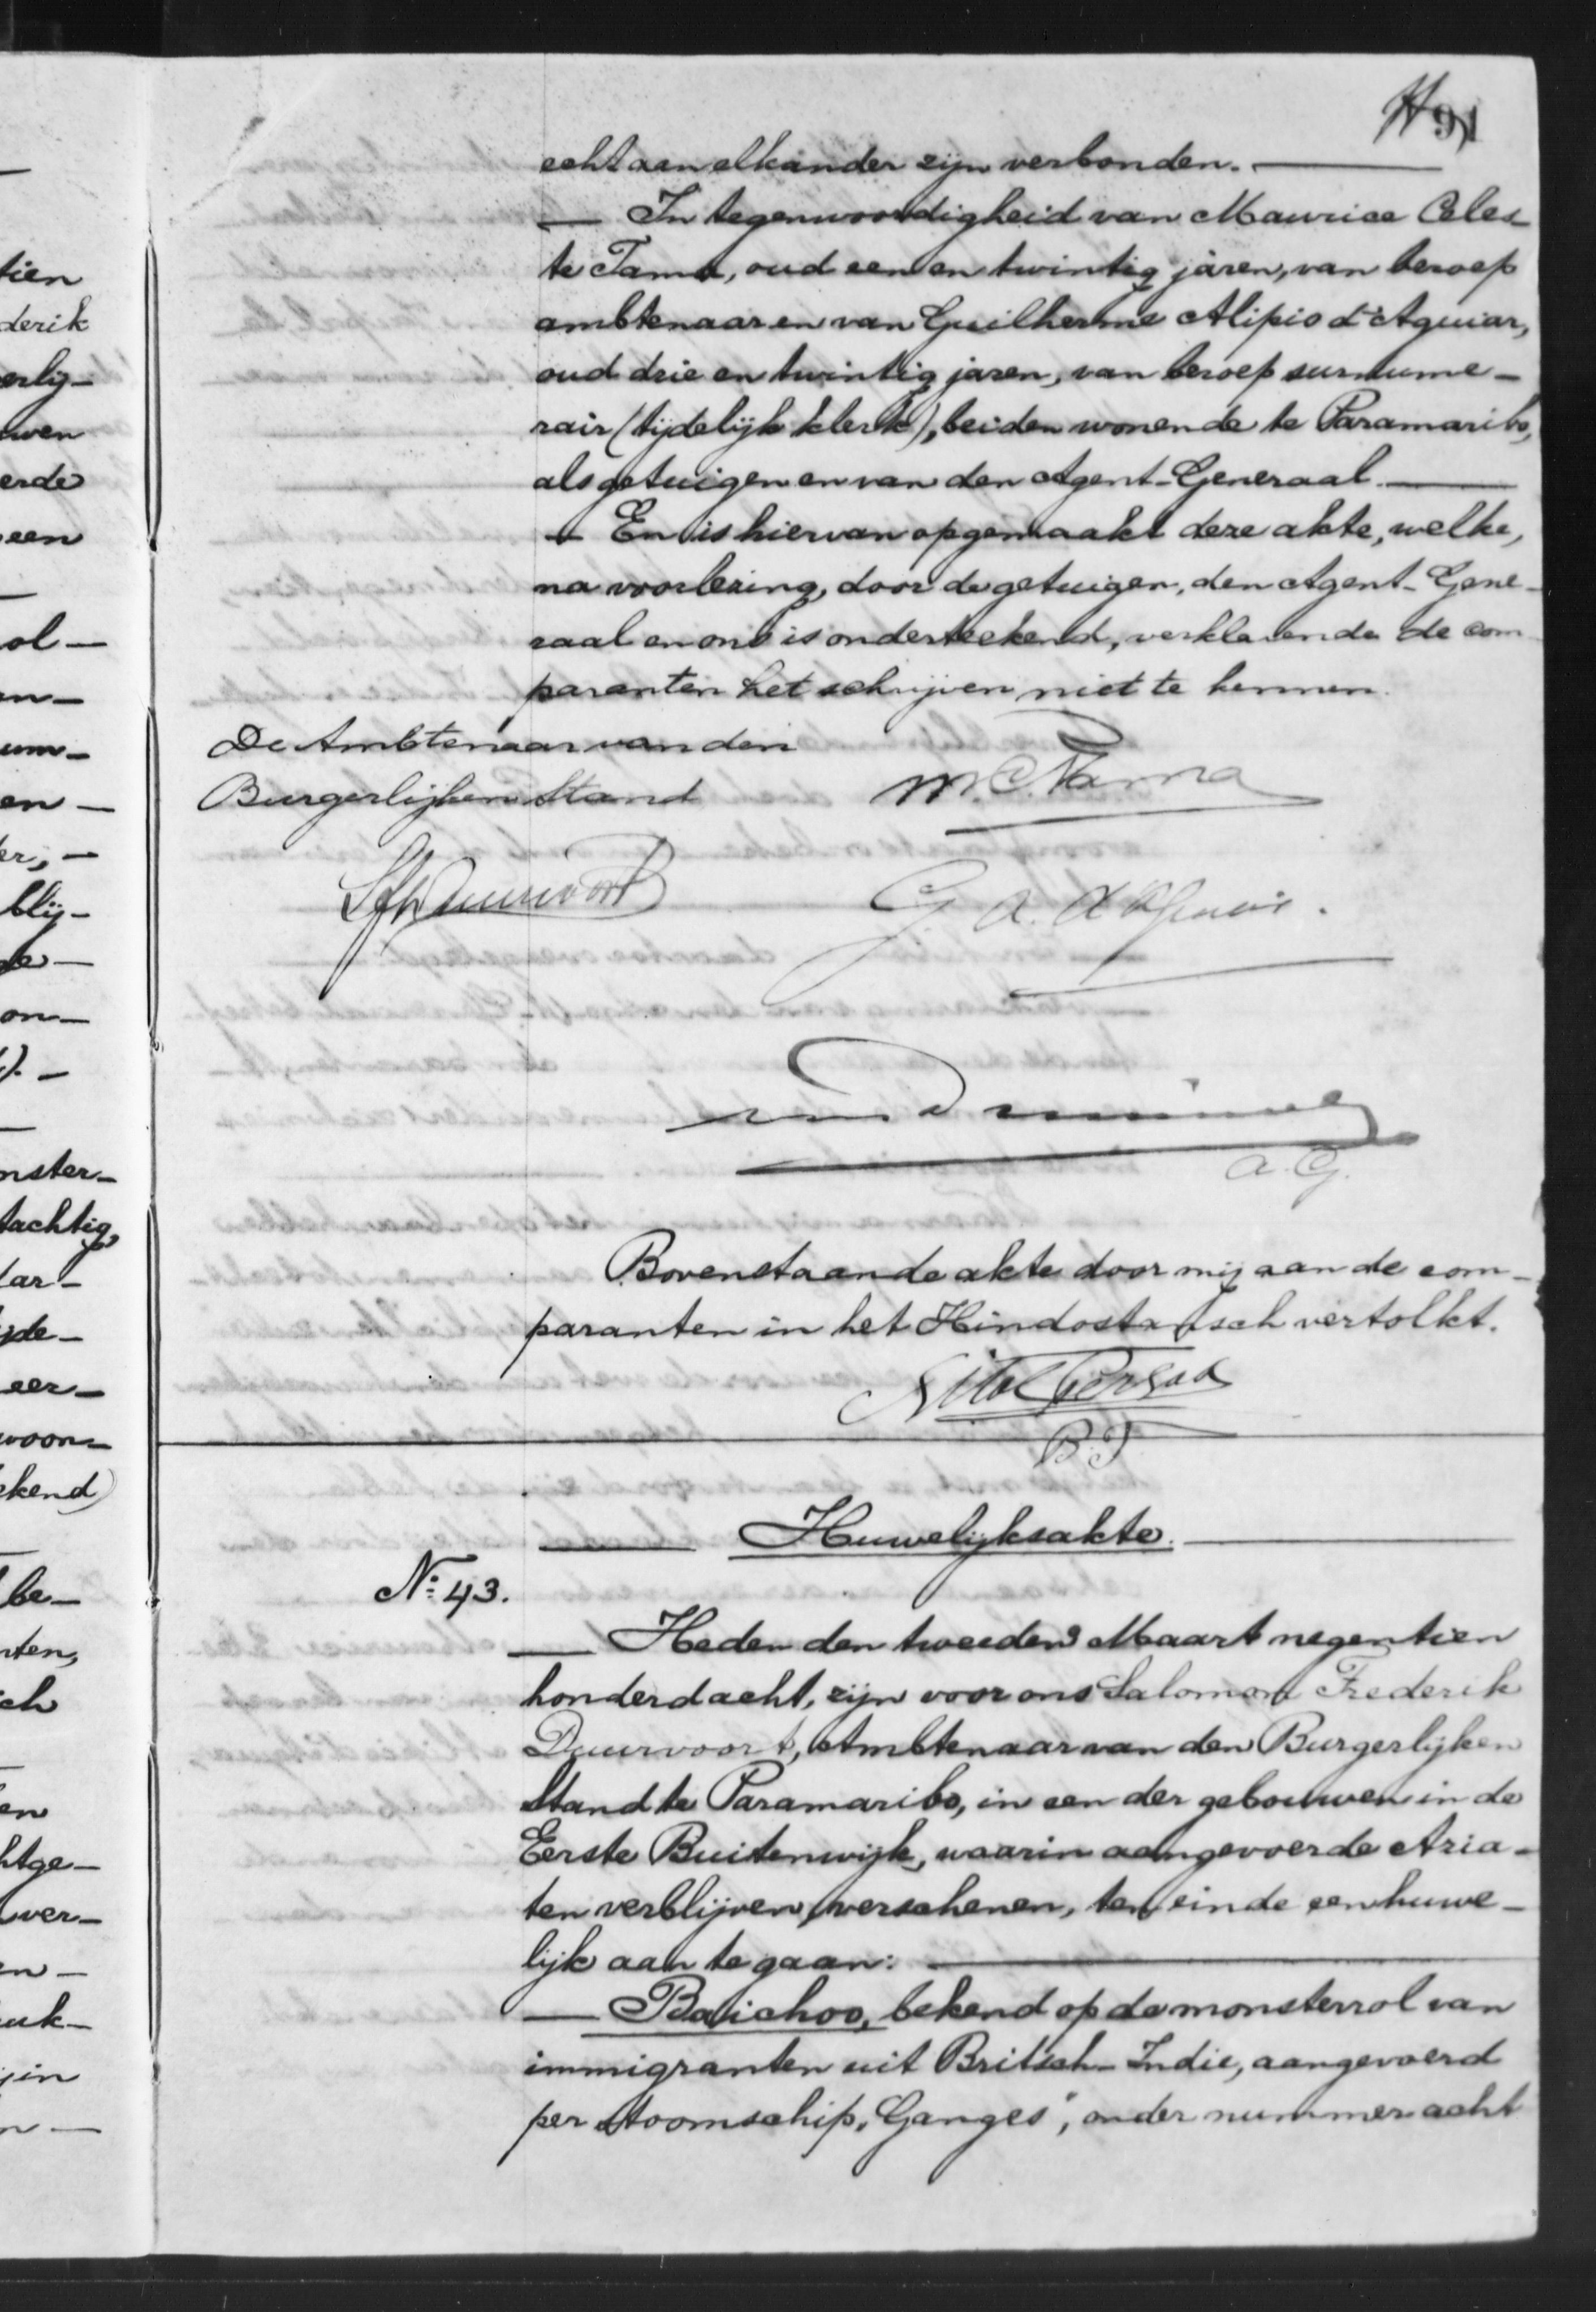 91
echt aan elkander zijn verbonden. —
— In tegenwoordigheid van Maurice Celes-
te Tama, oud een en twintig jaren, van beroep
ambtenaar en van Guilherme Alipio d'Aguiar,
oud drie en twintig jaren, van beroep surnume-
rair (tijdelijk klerk), beiden wonende te Paramaribo,
als getuigen en van den Agent-Generaal. —
— En is hiervan opgemaakt deze akte, welke,
na voorlezing, door de getuigen, den Agent-Gene-
raal en ons is onderteekend, verklarende de com-
paranten het schrijven niet te kennen.
De Ambtenaar van den
Burgerlijken Stand
M.C. Tama
SFDuurvoort
G. A. d'Aguiar.
a. G.
Bovenstaande akte door mij aan de com-
paranten in het Hindostansch vertolkt.
Sital Persad
B.T
— Huwelijksakte. —
No. 43.
— Heden den tweeden Maart negentien
honderd acht, zijn voor ons Salomon Frederik
Duurvoort, Ambtenaar van den Burgerlijken
Stand te Paramaribo, in een der gebouwen in de
Eerste Buitenwijk, waarin aangevoerde Azia-
ten verblijven, verschenen, ten einde een huwe-
lijk aan te gaan: —
— Baichoo, bekend op de monsterrol van
immigranten uit Britsch-Indie, aangevoerd
per stoomschip „Ganges", onder nummer acht
tien
derik
erlij-
wen
erde
een
ol —
en-
um-
en —
er, —
blij-
de —
on-
). —
nster-
tachtig,
lar-
ijde-
eer-
woon-
ekend)
be-
nten,
ich
en
htge-
ver-
en —
uk-
jin
n —